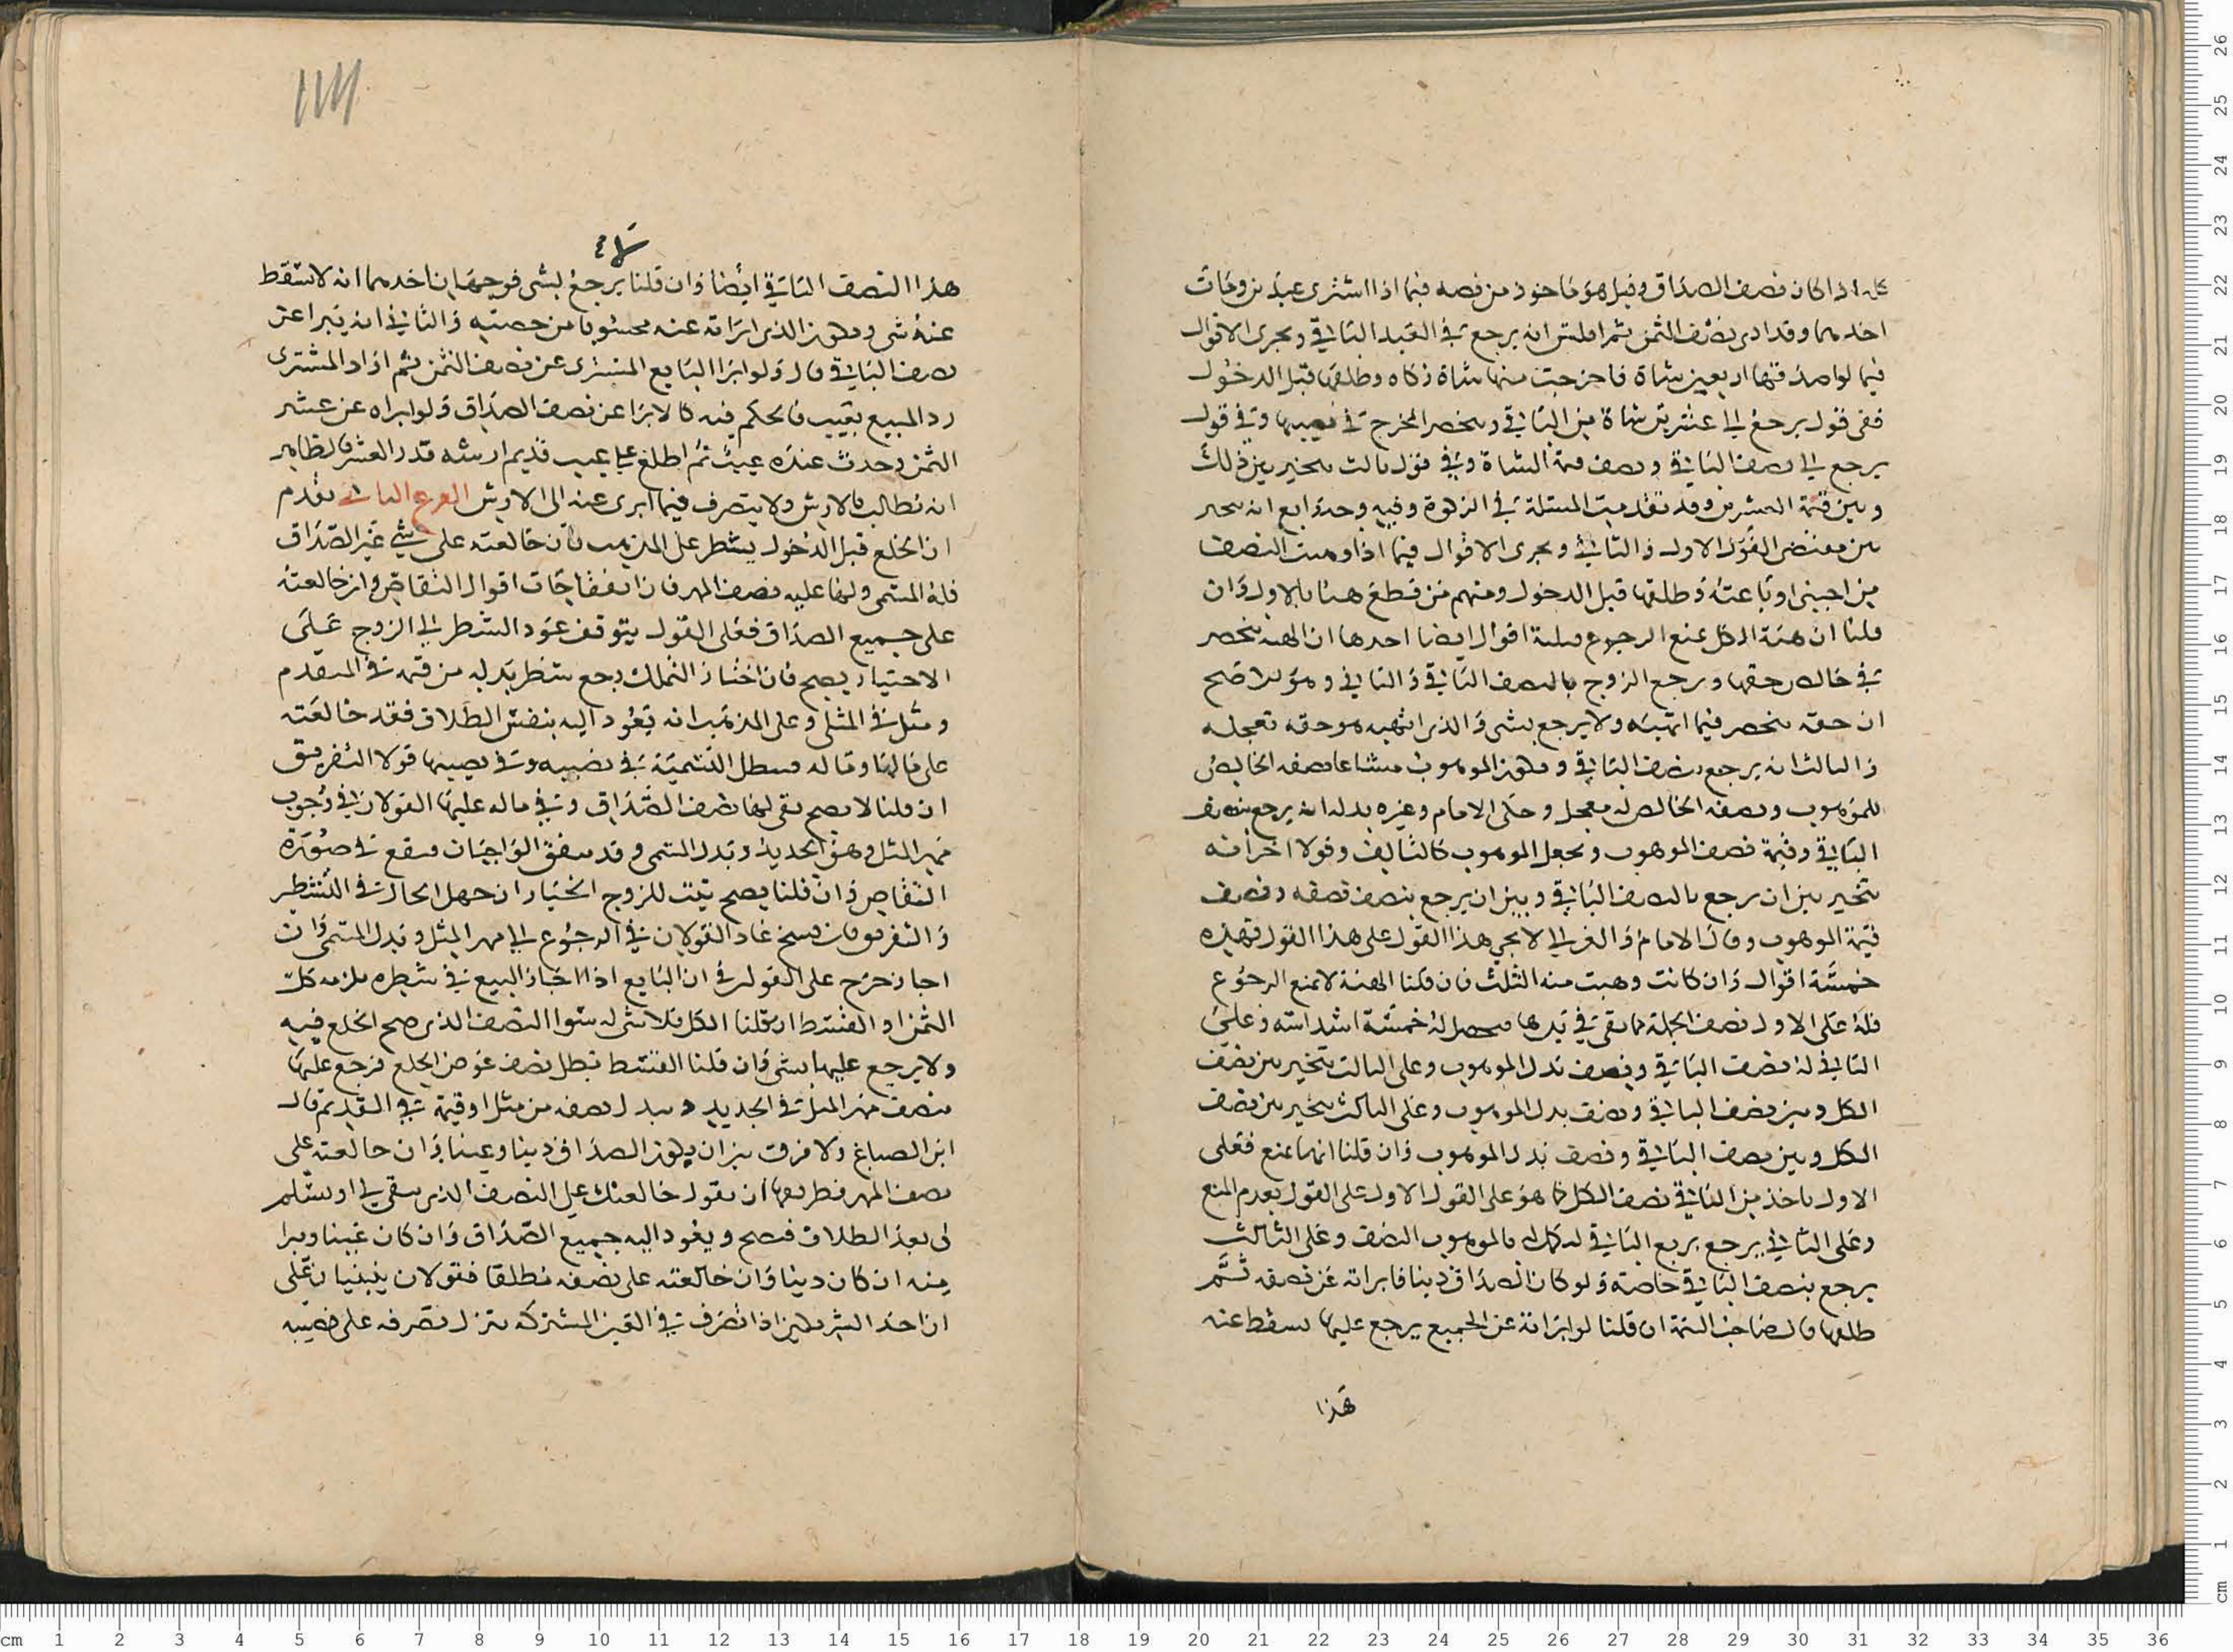 كل اذا كان نصف الصداق وقيل هو ماخوذ من نصه فيما اذا اشترى عبدين ومات
احدهما وقد ادى نصف الثمن ثم افلس انه يرجع في العبد الباقي وتجرى الاقوال
فيما لو اصدقها اربعين شاة فاخرجت منها شاة زكاه وطلقها قبل الدخول
ففى قول يرجع الى عشرين شاة من الباقي وينحصر المخرج في نصيبها وفي قول
يرجع الى نصف الباقي ونصف قيمة الشاة وفي قول ثالث يتخير بين ذلك
وبين قيمة العشرين وقد تقدمت المسئلة في الزكوة وفيه وجه رابع انه يتخير
بين مقتضى القول الاول والثاني ويجرى الاقوال فيما اذا وهبت النصف
من اجنبى او باعته وطلقها قبل الدخول ومنهم من قطع هنا بالاول وان
قلنا ان هبة الكل تمنع الرجوع فثلثة اقوال ايضا احدها ان الهبة تنحصر
في خالص حقها ويرجع الزوج بالنصف الباقي والثاني وهو الاصح
ان حقه ينحصر فيما اتهبه ولا يرجع بشى والذى اتهبه هو حقه تعجله
والثالث انه يرجع بنصف الباقي ويكون الموهوب مشاعا نصفه الخالص
للموهوب ونصفه الخالص له معجل وحكى الامام وغيره بدله انه يرجع بنصف
الباقي وقيمة نصف الموهوب ويجعل الموهوب كالتالف وقولا اخر انه
يتخير بين ان يرجع بالنصف الباقي وبين ان يرجع بنصف نصفه ونصف
قيمة الموهوب وقال الامام والغزالى لا يجي هذا القول على هذا القول فهذه
خمسة اقوال وان كانت وهبت منه الثلث فان قلنا الهبة لا تمنع الرجوع
فله على الاول نصف الجملة مما بقى في يدها فيحصل له خمسة اسداسه وعلى
الثاني له نصف الباقي ونصف بدل الموهوب وعلى الثالث يتخير بين نصف
الكل وبين نصف الباقي ونصف بدل الموهوب وعلى الثالث يتخير بين نصف
الكل وبين نصف الباقي ونصف بدل الموهوب وان قلنا انها تمنع فعلى
الاول ياخذ من الباقي نصف الكل كما هو على القول الاول على القول بعدم المنع
وعلى الثاني يرجع بربع الباقي ليكمل له بالموهوب النصف وعلى الثالث
يرجع بنصف الباقي خاصة ولو كان الصداق دينا فابراته عن نصفه ثم
طلقها قال صاحب التتمة ان قلنا لو ابراته عن الجميع يرجع عليها يسقط عنه
هذا
هذا النصف الباقي ايضا وان قلنا يرجع بشى فوجهان احدهما انه لا يسقط
عنه شى ويكون الذى ابراته عنه محسوبا من حصته والثاني انه يبرا عن
نصف الباقي قال ولو ابرا البايع المشترى عن نصف الثمن ثم اراد المشترى
رد المبيع بعيب فالحكم فيه كالابرا عن نصف الصداق ولو ابراه عن عشر
الثمن وحدث عنده عيب ثم اطلع على عيب قديم ارشه قدر العشر فالظاهر
انه يطالب بالارش ولا يتصرف فيما ابرى عنه الى الارش الفرع الثاني تقدم
ان الخلع قبل الدخول يشطر على المذهب فان خالعته على شي غير الصداق
فله المسمى ولها عليه نصف المهر فان اتفقا جات اقوال التقاص وان خالعته
على جميع الصداق فعلى القول يتوقف عود الشطر الى الزوج على
الاختيار يصح فان اختار التملك رجع بشطر بدله من قيمة في المتقدم
ومثل في المثلى وعلى المذهب انه يعود اليه بنفس الطلاق فقد خالعته
على مالها وماله فيبطل التسمية في نصيبه وفي نصيبها قولا التفريق
ان قلنا لا يصح بقى لها نصف الصداق وفي ماله عليها القولان في وجوب
مهر المثل وهو الجديد وبدل المسمى وقد يتفق الواجبان فيقع في صورة
التقاص وان قلنا يصح يثبت للزوج الخيار ان جهل الحال في التشطير
والتفريق فان فسخ عاد القولان في الرجوع الى مهر المثل وبدل المسمى وان
اجاز خرج على القولين في ان البايع اذا اجاز البيع في شطره يلزمه كل
الثمن او القسط ان قلنا الكل فلا شى له سوا النصف الذى صح الخلع فيه
ولا يرجع عليها بشى وان قلنا القسط تبطل نصف عوض الخلع فرجع عليها
بنصف مهر المثل في الجديد وببدل نصفه من مثل او قيمة في القديم قال
ابن الصباغ ولا فرق بين ان يكون الصداق دينا وعينا وان خالعته على
نصف المهر فطريقها ان يقول خالعتك على النصف الذى يبقى لي او يسلم
لى بعد الطلاق فيصح ويعود اليه جميع الصداق وان كان عينا ويبرا
منه ان كان دينا وان خالعته على نصفه مطلقا فقولان يبنيان على
ان احد الشريكين اذا تصرف في العين المشتركه ينزل تصرفه على نصيبه